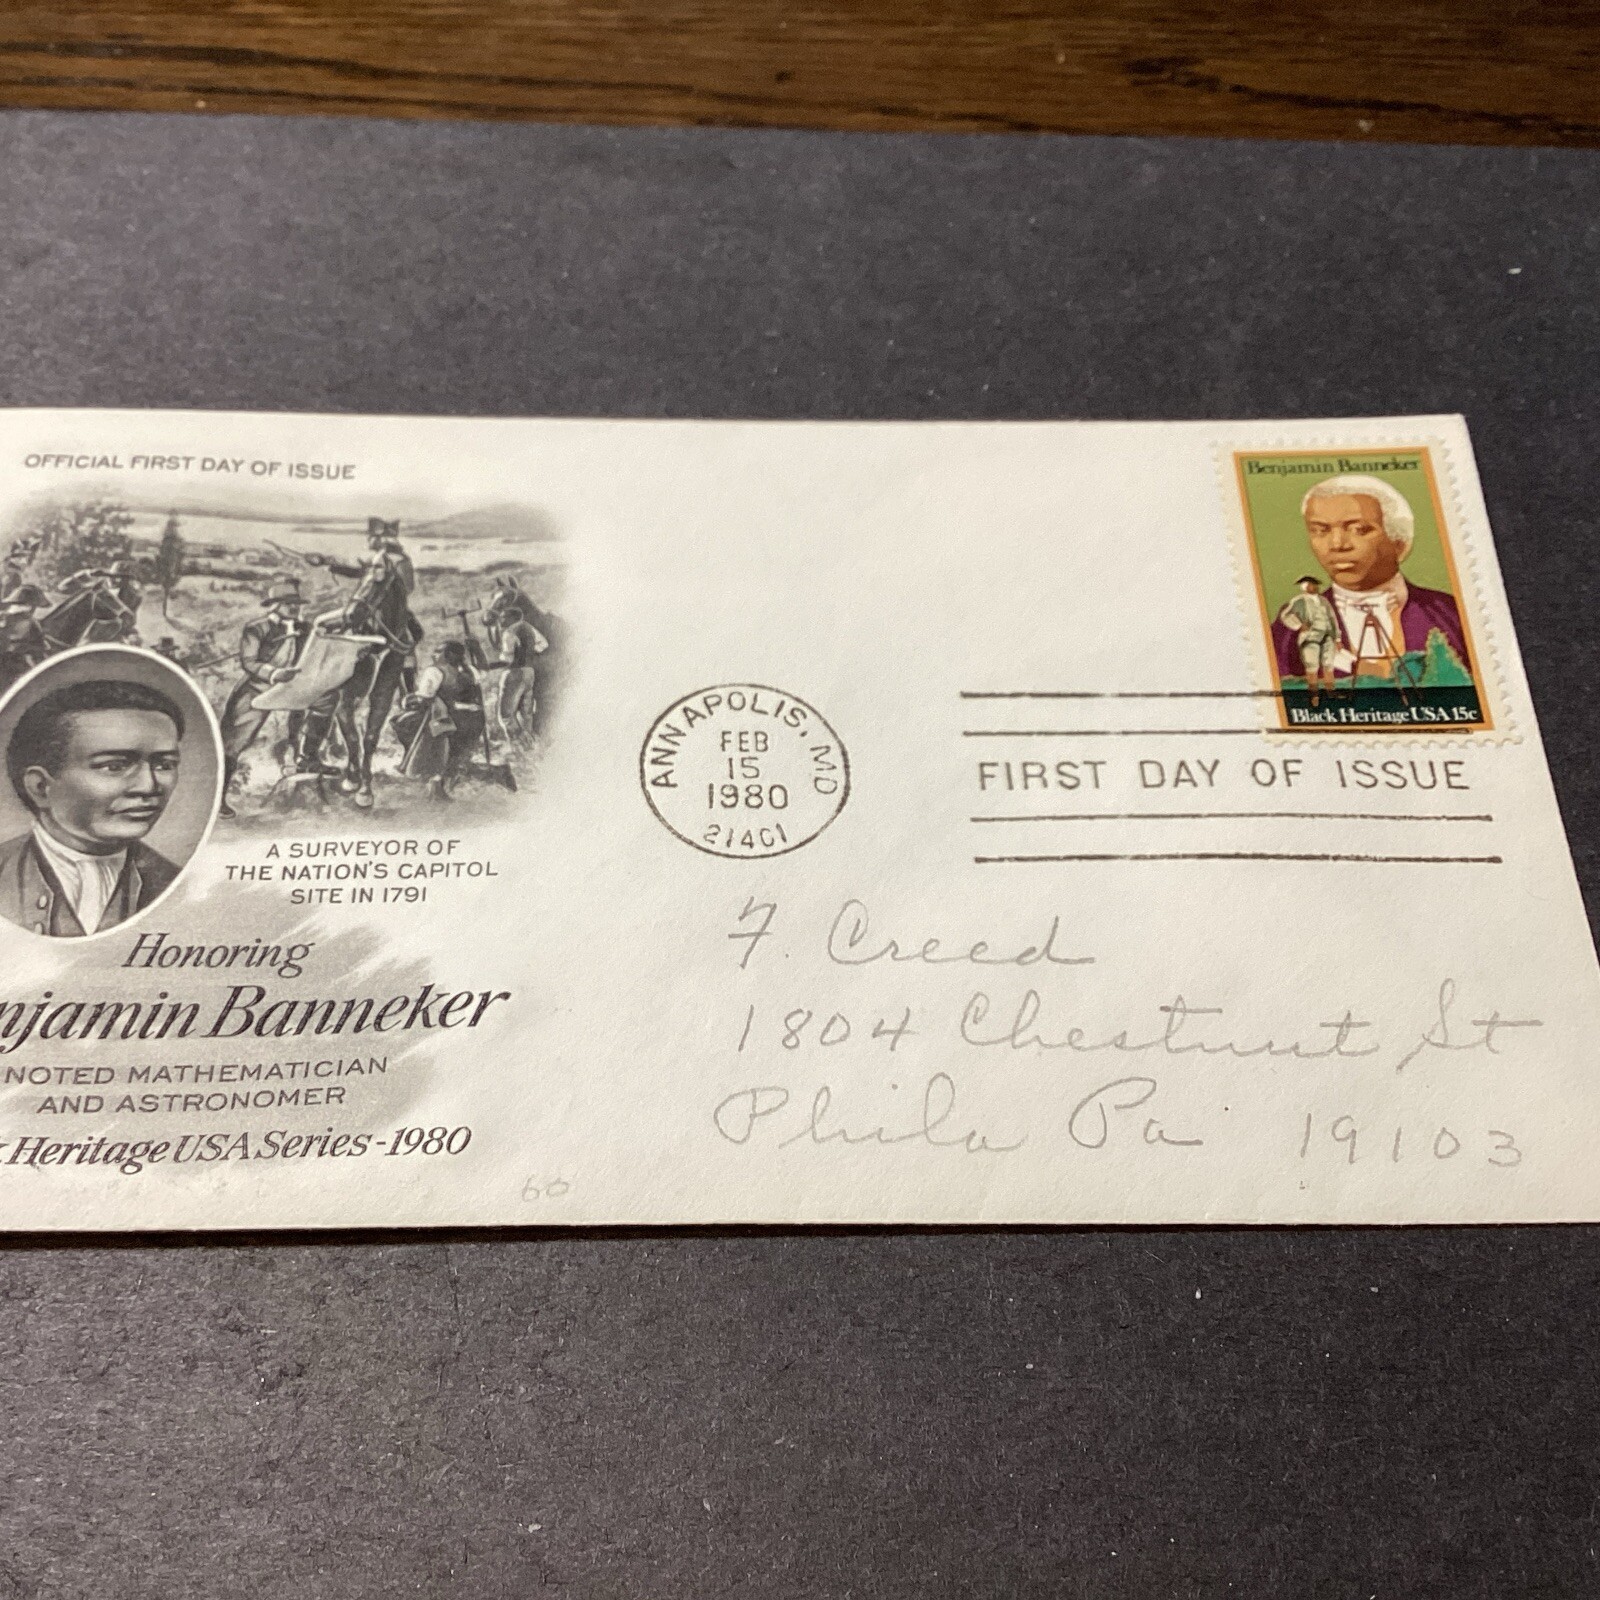 OFFICIAL FIRST DAY OF ISSUE
A SURVEYOR OF
THE NATION'S CAPITOL
SITE IN 1791
Honoring
njamin Banneker
NOTED MATHEMATICIAN
AND ASTRONOMER
Heritage USA Series-1980
60
ANNAPOLIS, MD
FEB
15
1980
21401
Benjamin Banneker
Black Heritage USA 15c
FIRST DAY OF ISSUE
F. Creed
1804 Chestnut St
Phila Pa 19103